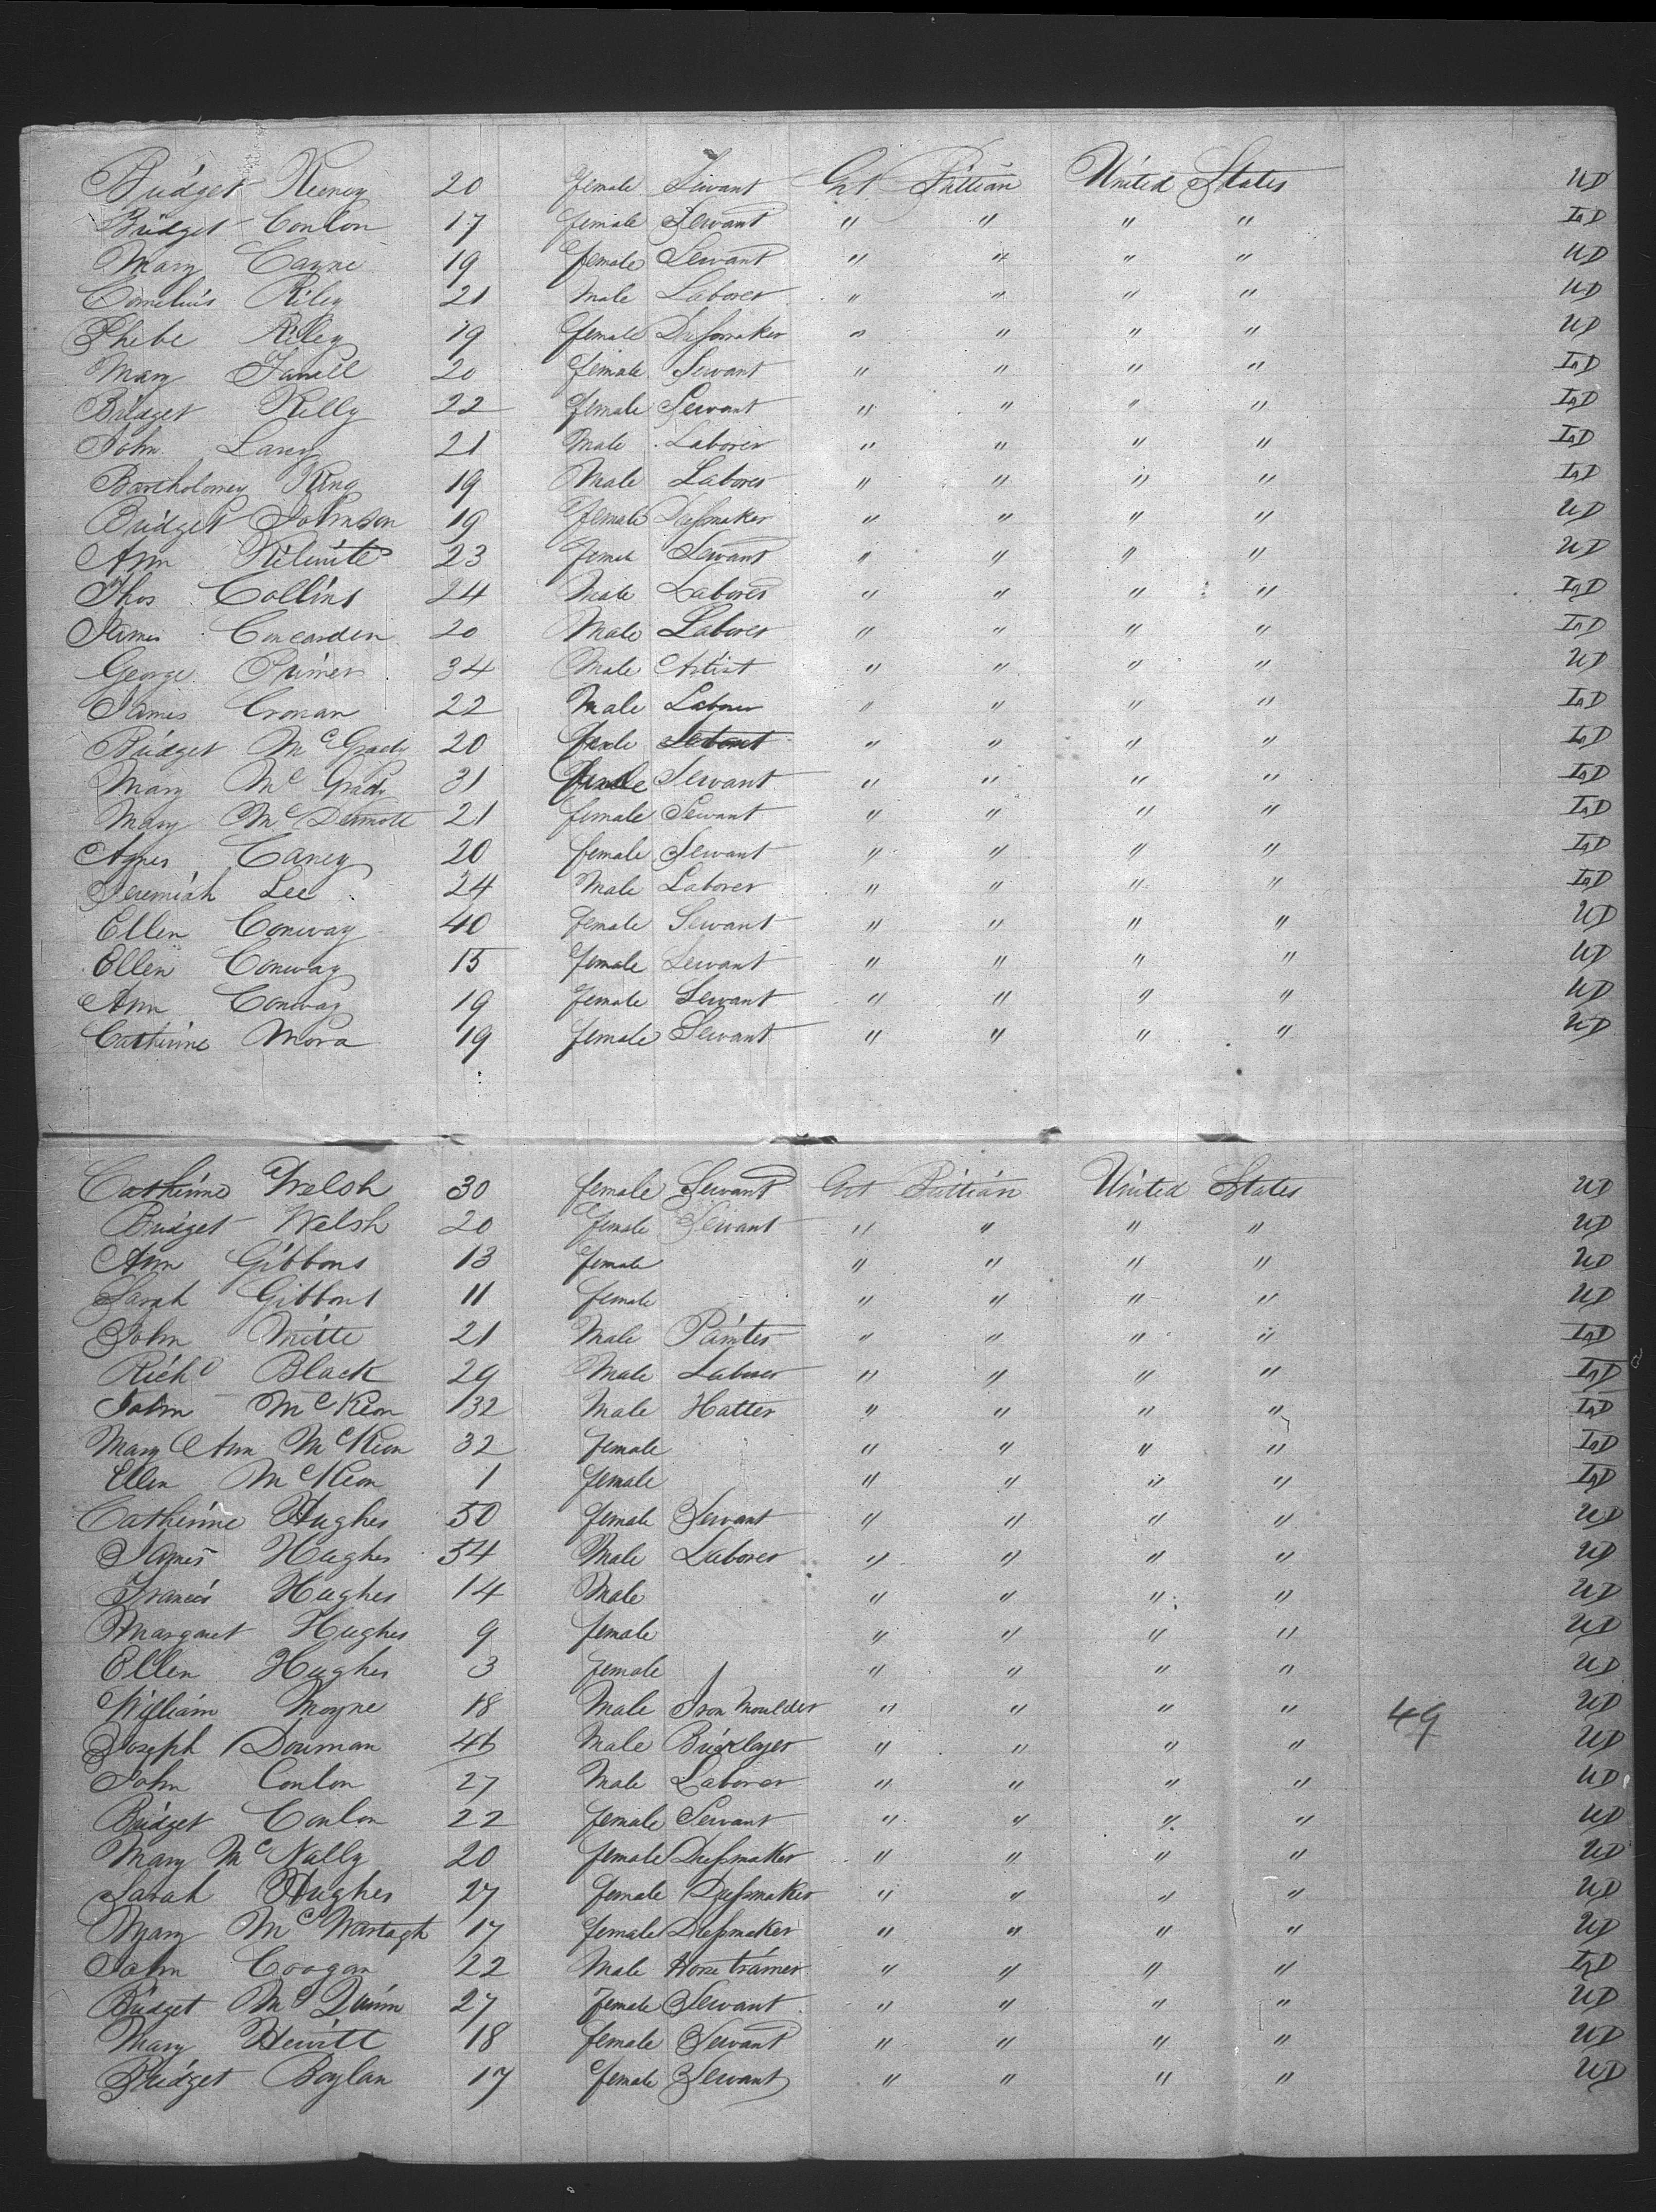 Bridget Keeney 20 female Servant Grt Brittian United States UD
Bridget Conlon 17 female Servant " " " " LD
Mary Cayne 19 female Servant " " " " UD
Cornelius Riley 21 Male Laborer " " " " UD
Phebe Riley 19 female Dressmaker " " " " UD
Mary Farrell 20 female Servant " " " " LD
Bridget Kelly 22 female Servant " " " " LD
John Lavy 21 Male Laborer " " " " LD
Bartholomey King 19 Male Laborer " " " " LD
Bridget Johnson 19 female Dressmaker " " " " UD
Ann 23 female Servant " " " " UD
Thos Collins 24 Male Laborer " " " " LD
James Concarden 20 Male Laborer " " " " LD
George 34 Male Artist " " " " UD
James Cronan 22 Male Laborer " " " " LD
Bridget McGrady 20 female " " " " LD
Mary McGrady 31 female Servant " " " " LD
Mary McDermott 21 female Servant " " " " LD
Agnes Caney 20 female Servant " " " " LD
Jeremiah Lee 24 Male Laborer " " " " LD
Ellen Conway 40 female Servant " " " " UD
Ellen Conway 15 female Servant " " " " UD
Ann Conway 19 female Servant " " " " UD
Catherine Mora 19 female Servant " " " " UD
Catherine Welsh 30 female Servant Grt Brittian United States UD
Bridget Welsh 20 female Servant " " " " UD
Ann Gibbons 13 female " " " " UD
Sarah Gibbons 11 female " " " " UD
John 21 Male Painter " " " " LD
Richd Black 29 Male Laborer " " " " LD
John McKeon 32 Male Hatter " " " " LD
Mary Ann McKeon 32 female " " " " LD
Ellen McKeon 1 female " " " " LD
Catherine Hughes 50 female Servant " " " " UD
James Hughes 54 Male Laborer " " " " UD
Francis Hughes 14 Male " " " " UD
Margaret Hughes 9 female " " " " UD
Ellen Hughes 3 female " " " " UD
William Moyne 18 Male Iron Moulder " " " " 49 UD
Joseph Dorman 46 Male Bricklayer " " " " UD
John Conlon 27 Male Laborer " " " " UD
Bridget Conlon 22 female Servant " " " " UD
Mary McNally 20 female Dressmaker " " " " UD
Sarah Hughes 27 female Dressmaker " " " " UD
Mary 17 female Dressmaker " " " " UD
John Coogan 22 Male Horse trainer " " " " LD
Bridget McQuinn 27 female Servant " " " " UD
Mary Hewitt 18 female Servant " " " " UD
Bridget Boylan 17 female Servant " " " " UD